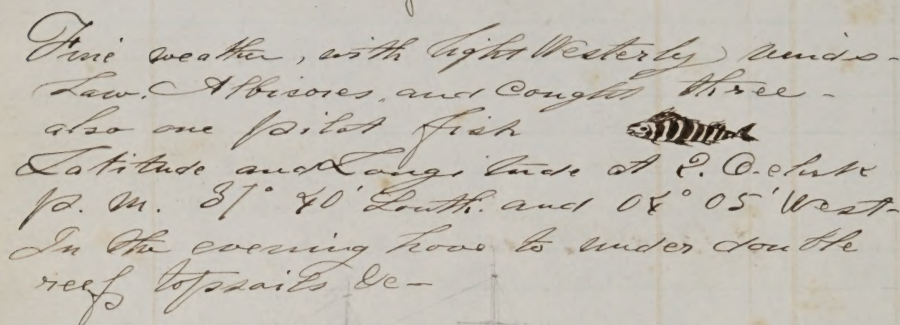 Fine weather, with light Westerly winds -
Saw. Albicores, and Caught three -
also one pilot fish
Latitude and Longitude at 2. O.clock
p. m. 37° 40' South. and 04° 05' West -
In the evening hove to under double
reef topsails &c -